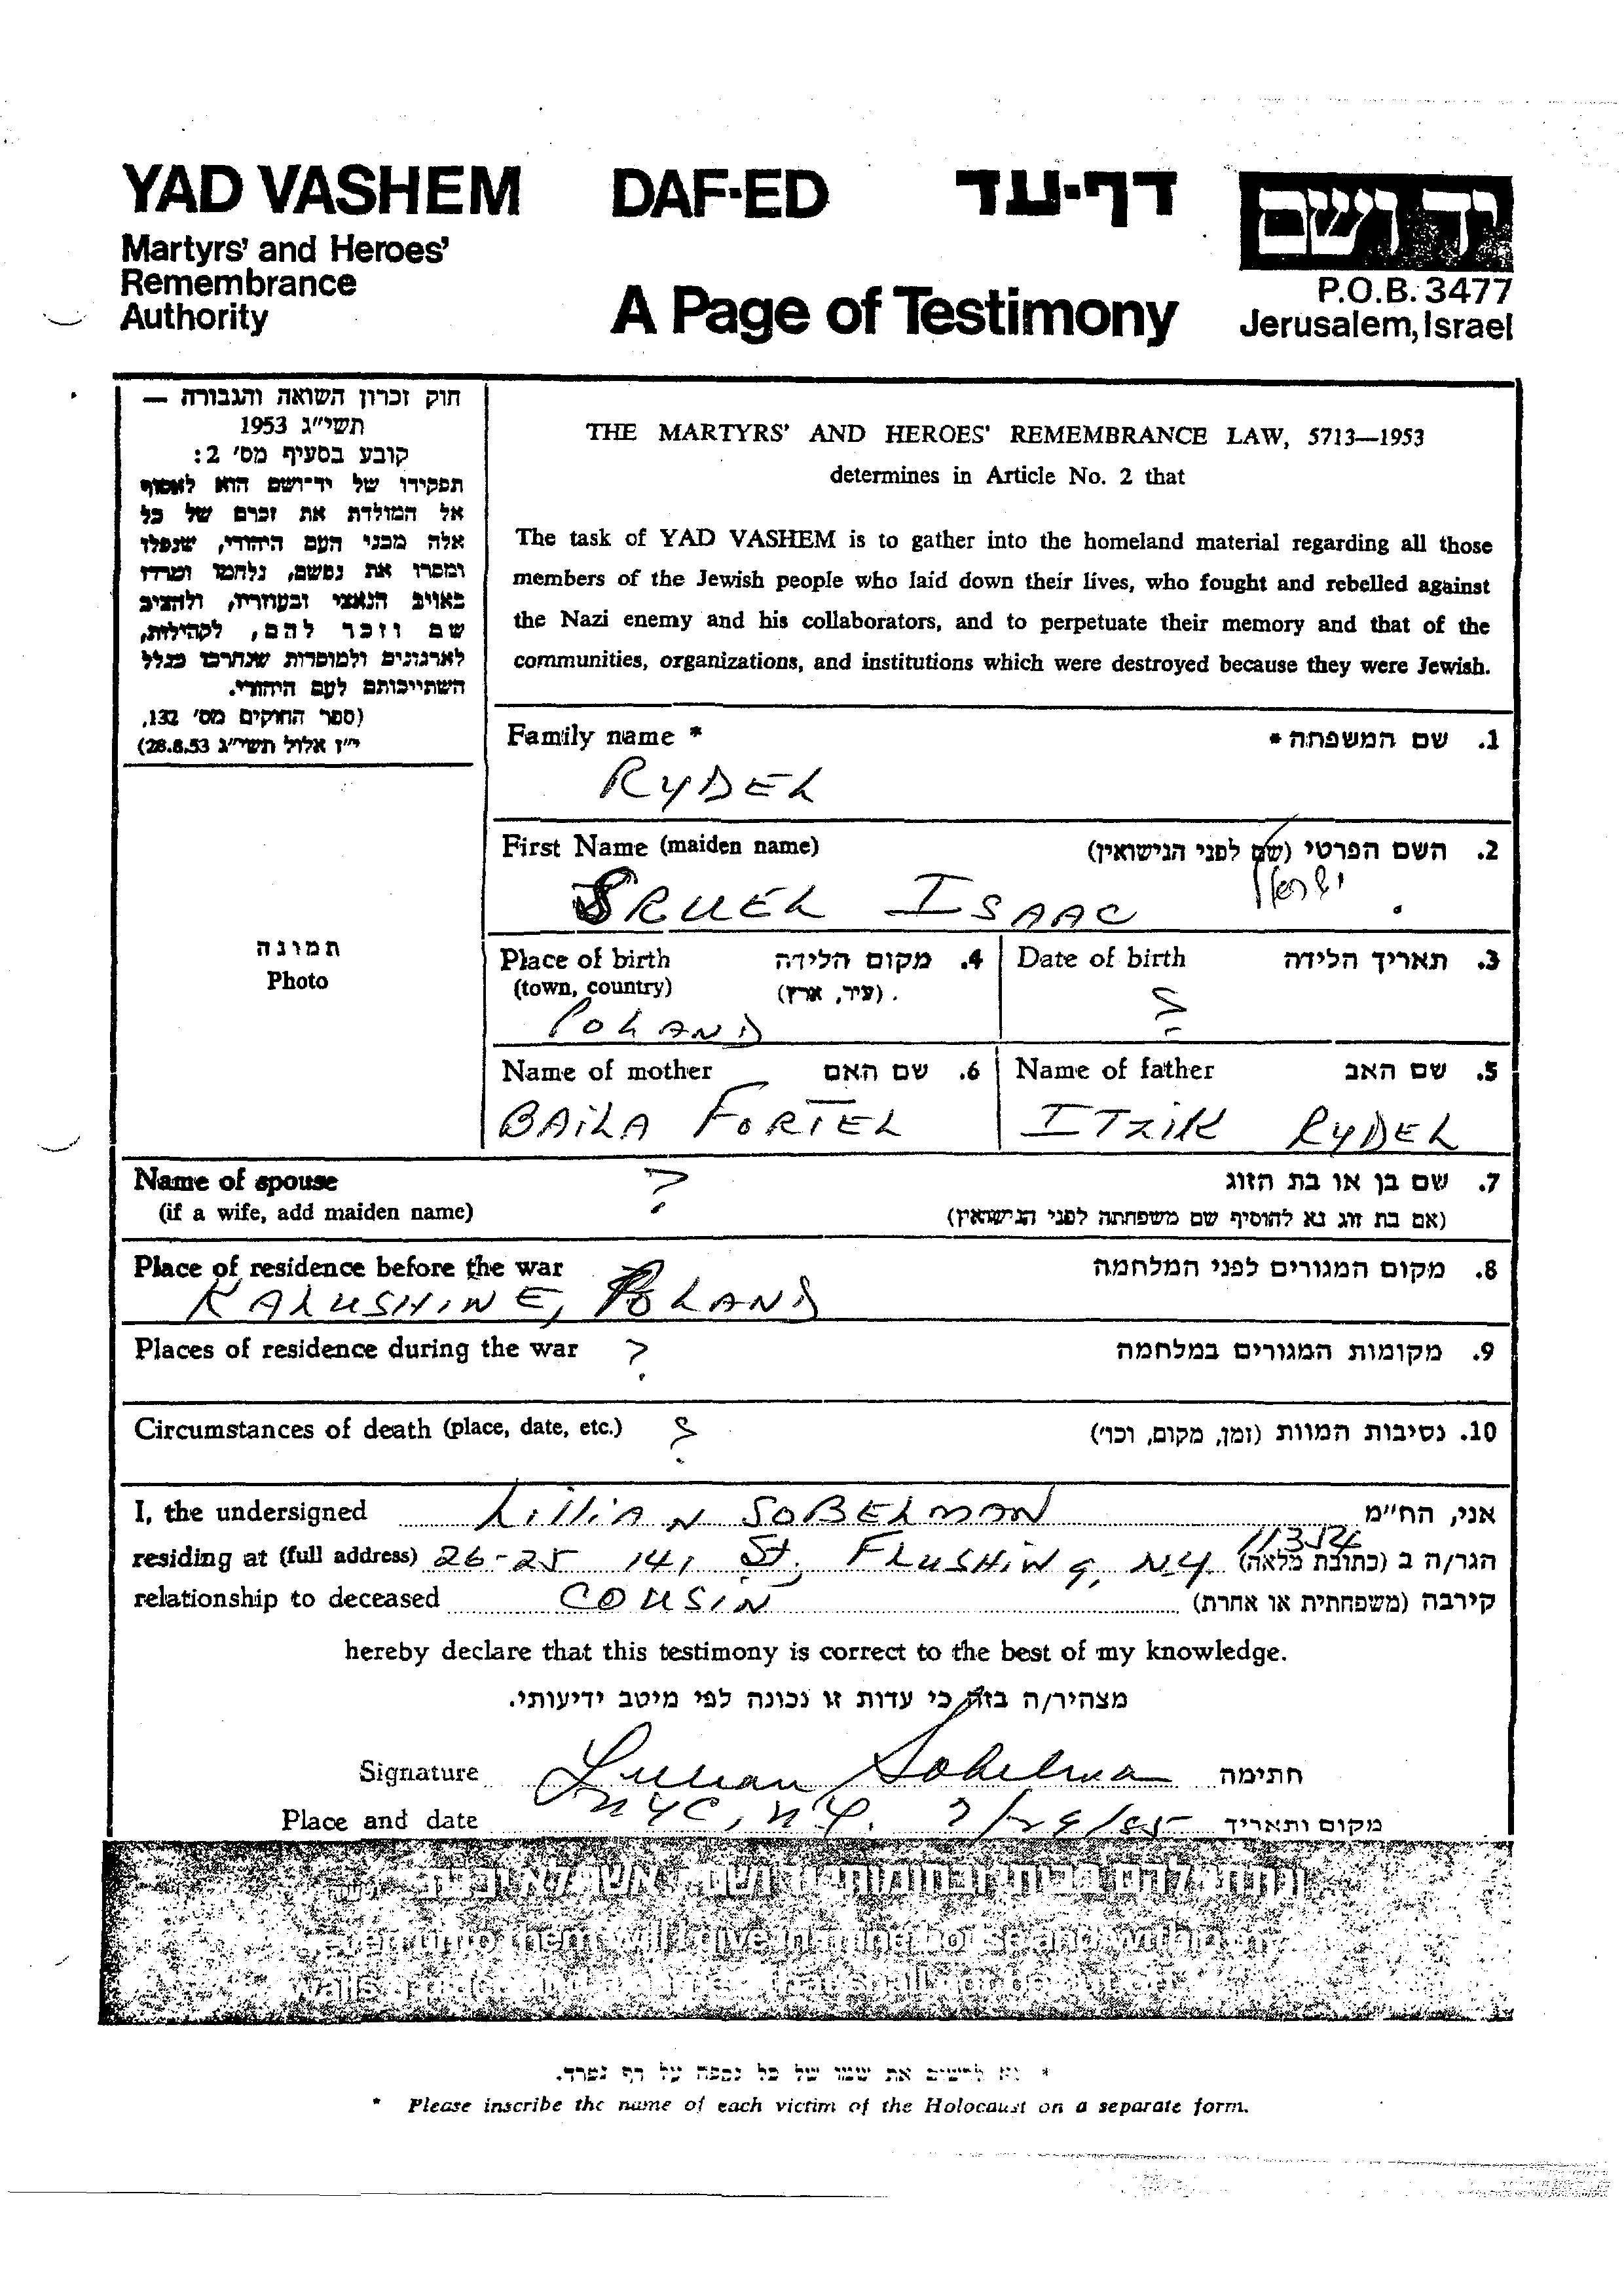 YAD VASHEM DAF-ED דף-עד ידושם
Martyrs' and Heroes'
Remembrance
Authority
A Page of Testimony
P.O.B. 3477
Jerusalem, Israel
חוק זכרון השואה והגבורה —
תשי"ג 1953
קובע בסעיף מס' 2:
תפקידו של יד-ושם הוא לאסוף
אל המולדת את זכרם של כל
אלה מבני העם היהודי, שנפלו
ומסרו את נפשם, נלחמו ומרדו
באויב הנאצי ובעוזריו, ולהציב
שם וזכר להם, לקהילות,
לארגונים ולמוסדות שנחרבו בגלל
השתייכותם לעם היהודי.
(ספר החוקים מס' 132,
י"ז אלול תשי"ג 28.8.53)
THE MARTYRS' AND HEROES' REMEMBRANCE LAW, 5713—1953
determines in Article No. 2 that
The task of YAD VASHEM is to gather into the homeland material regarding all those
members of the Jewish people who laid down their lives, who fought and rebelled against
the Nazi enemy and his collaborators, and to perpetuate their memory and that of the
communities, organizations, and institutions which were destroyed because they were Jewish.
Family name * 1. שם המשפחה *
RYDEL
First Name (maiden name) 2. השם הפרטי (שם לפני הנישואין)
SRUEL ISAAC ישראל
תמונה
Photo
Place of birth 4. מקום הלידה
(town, country) (עיר, ארץ)
POLAND
Date of birth 3. תאריך הלידה
?
Name of mother 6. שם האם
BAILA FORTEL
Name of father 5. שם האב
ITZIK RYDEL
Name of spouse ? 7. שם בן או בת הזוג
(if a wife, add maiden name) (אם בת זוג נא להוסיף שם משפחתה לפני הנישואין)
Place of residence before the war 8. מקום המגורים לפני המלחמה
KALUSHINE, POLAND
Places of residence during the war ? 9. מקומות המגורים במלחמה
Circumstances of death (place, date, etc.) ? 10. נסיבות המוות (זמן, מקום, וכו')
I, the undersigned LILLIAN SOBELMAN אני, הח"מ
residing at (full address) 26-25 141 St. FLUSHING, N.Y. 11354 הגר/ה ב (כתובת מלאה)
relationship to deceased COUSIN קירבה (משפחתית או אחרת)
hereby declare that this testimony is correct to the best of my knowledge.
מצהיר/ה בזה כי עדות זו נכונה לפי מיטב ידיעותי.
Signature Lillian Sobelman חתימה
Place and date NYC, NY. מקום ותאריך
...even unto them will I give in mine house and within my
walls a place and a name... that shall not be cut off
* נא לרשום את שמו של כל נספה על דף נפרד.
* Please inscribe the name of each victim of the Holocaust on a separate form.